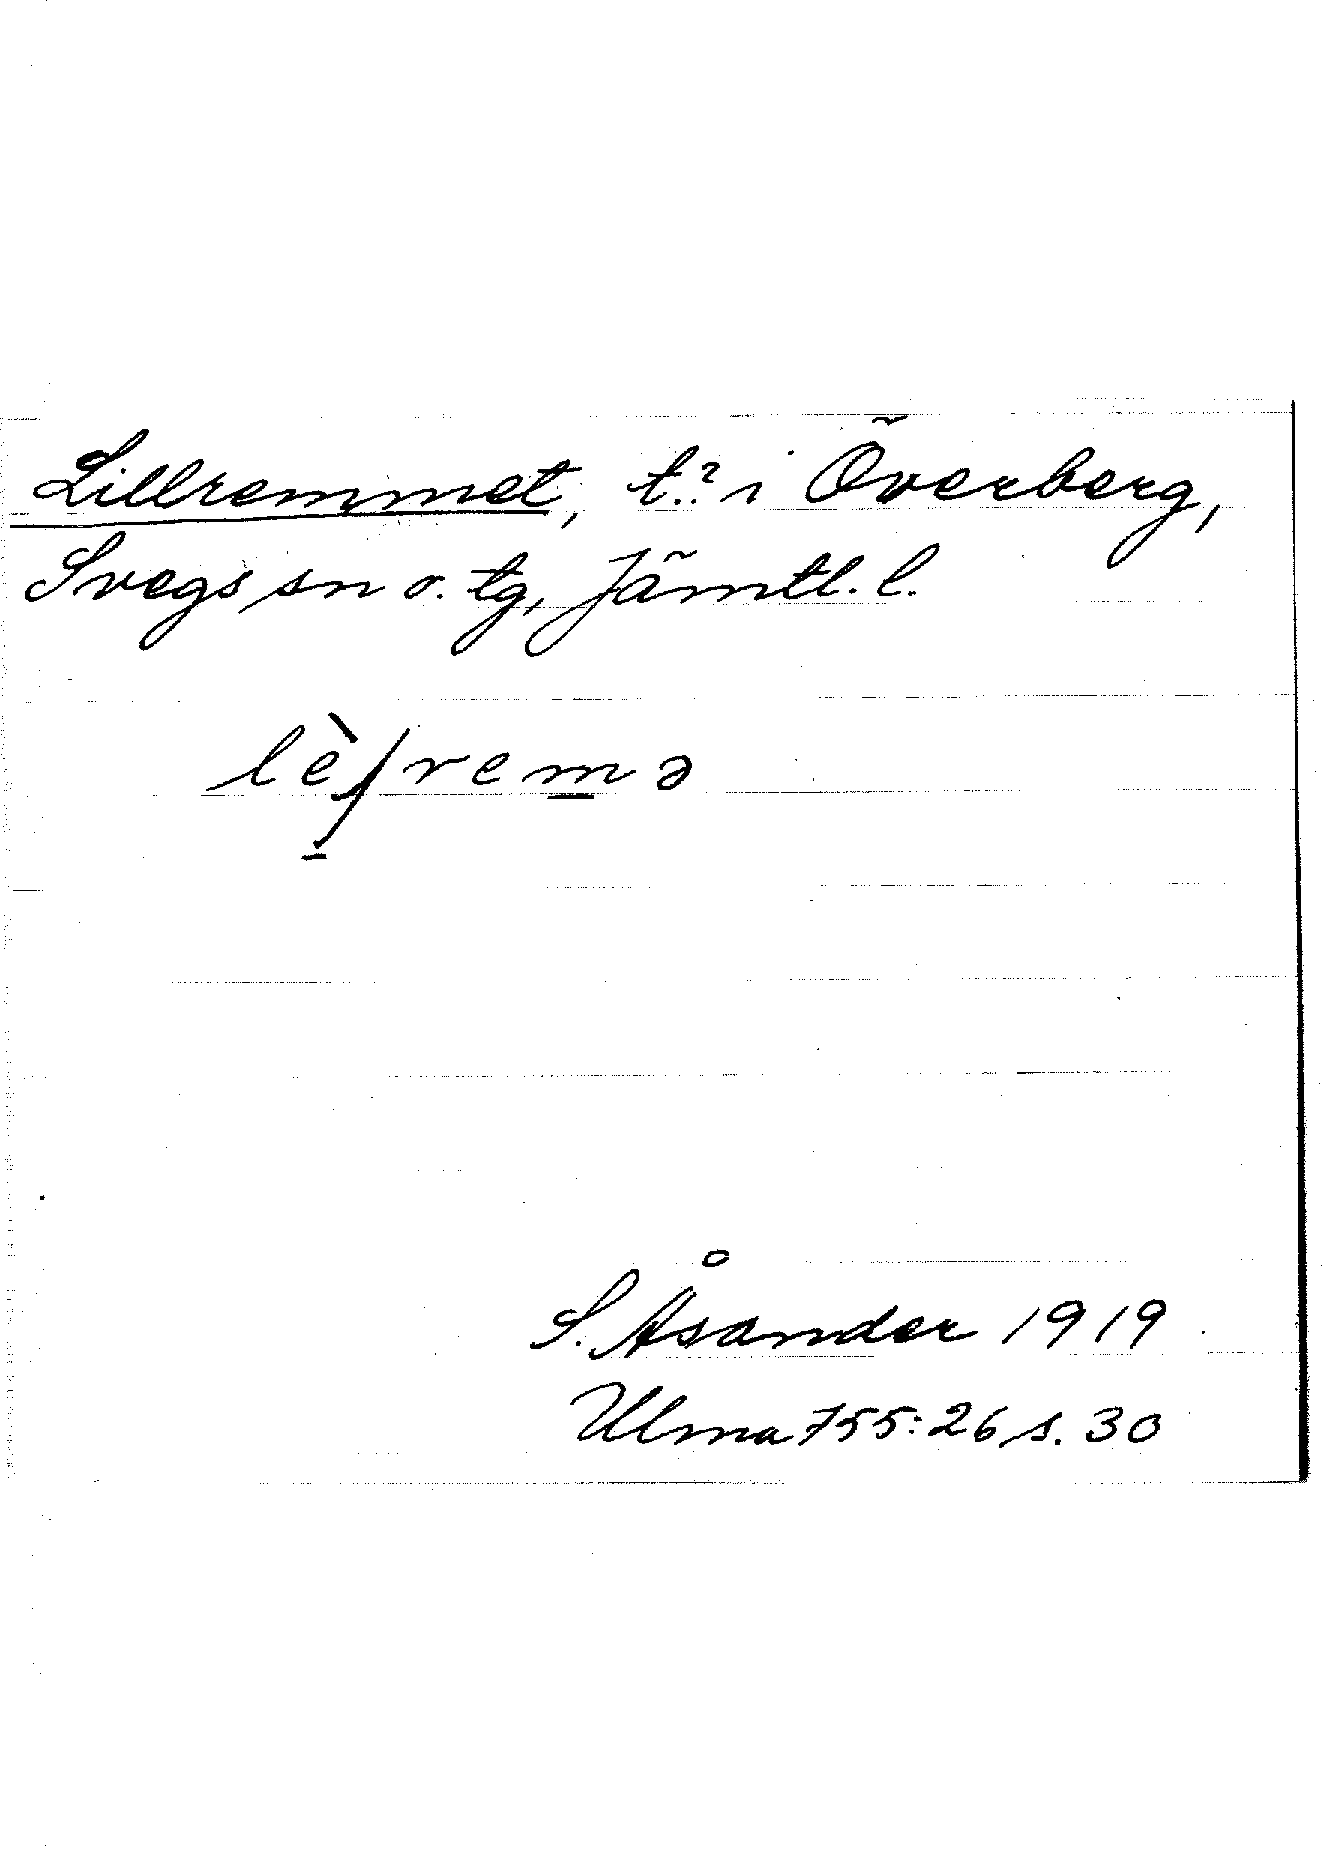 Lillremmet, t.? i Överberg,
Svegs sn o. tg, Jämtl. l.
lèʃremə
S. Åsander 1919
Ulma 755:26 s. 30